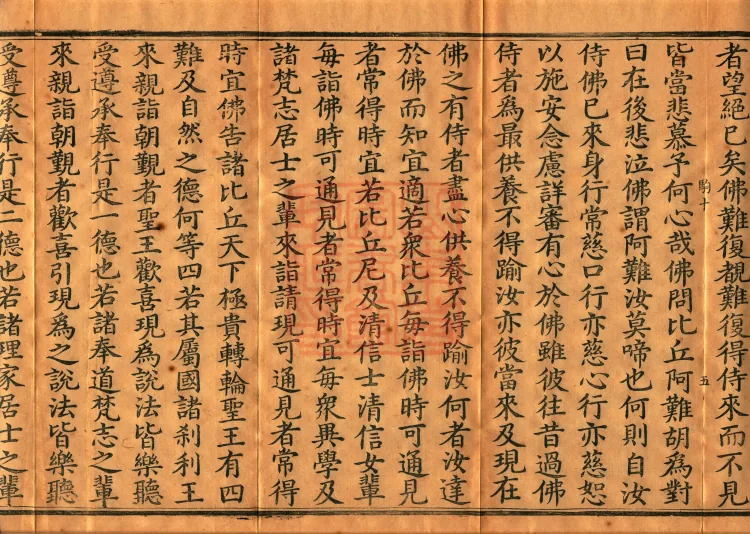 者望絕已矣佛難復覩難復得侍來而不見
皆當悲慕子何心哉佛問比丘阿難胡為對
曰在後悲泣佛謂阿難汝莫啼也何則自汝
侍佛已來身行常慈口行亦慈心行亦慈恕
以施安念慮詳審有心於佛雖彼往昔過佛
侍者為最供養不得踰汝亦彼當來及現在
佛之有侍者盡心供養不得踰汝何者汝達
於佛而知宜適若衆比丘每詣佛時可通見
者常得時宜若比丘尼及清信士清信女輩
每詣佛時可通見者常得時宜每衆異學及
諸梵志居士之輩來詣請現可通見者常得
時宜佛告諸比丘天下極貴轉輪聖王有四
難及自然之德何等四若其屬國諸刹利王
來親詣朝覲者聖王歡喜現為說法皆樂聽
受遵承奉行是一德也若諸奉道梵志之輩
來親詣朝覲者歡喜引現為之說法皆樂聽
受尊承奉行是二德也若諸理家居士之輩
駒十
五